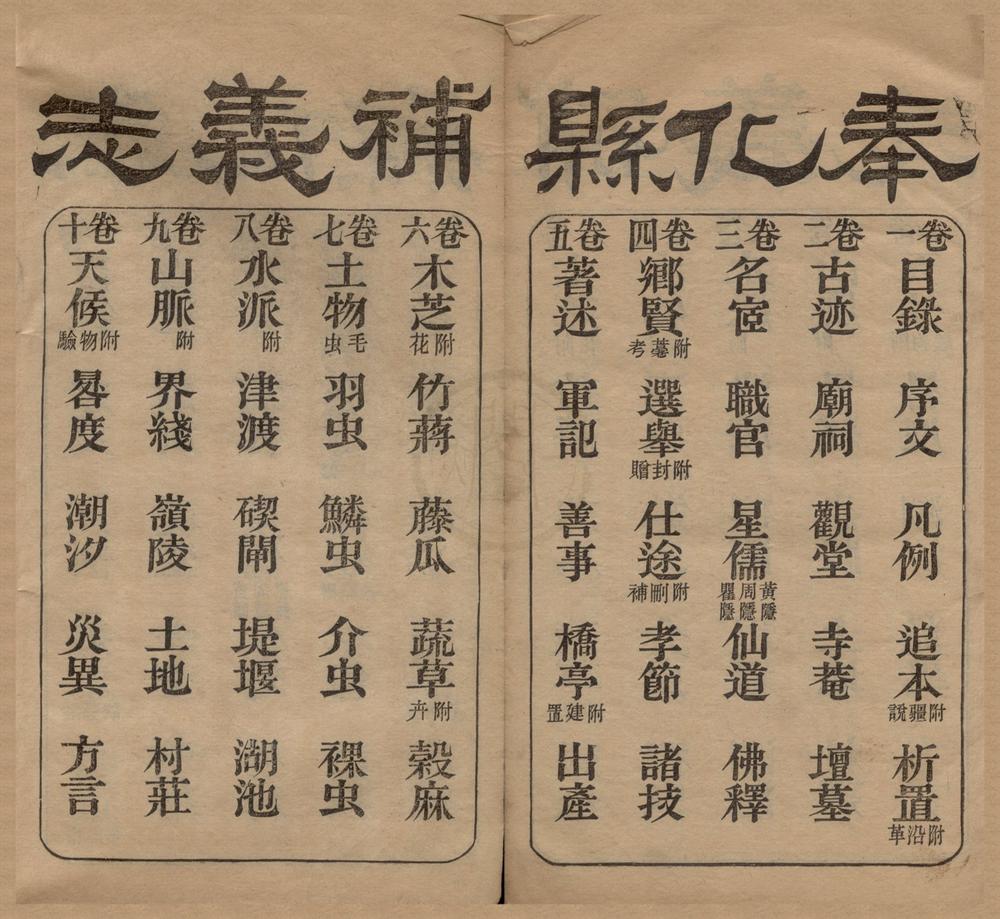 奉化縣補義志
卷一 目錄 序文 凡例 追本 附疆說 析置 附沿革
卷二 古迹 廟祠 觀堂 寺菴 壇墓
卷三 名宦 職官 星儒 黃隱 周隱 瞿隱 仙道 佛釋
卷四 鄉賢 附墓考 選舉 附封贈 仕途 附刪補 孝節 諸技
卷五 著述 軍記 善事 橋亭 附建置 出產
卷六 木芝 附花 竹蔣 藤瓜 蔬草 附卉 穀麻
卷七 土物 毛虫 羽虫 鱗虫 介虫 裸虫
卷八 水派 附 津渡 碶閘 堤堰 湖池
卷九 山脈 附 界綫 嶺陵 土地 村莊
卷十 天候 附物驗 晷度 潮汐 災異 方言